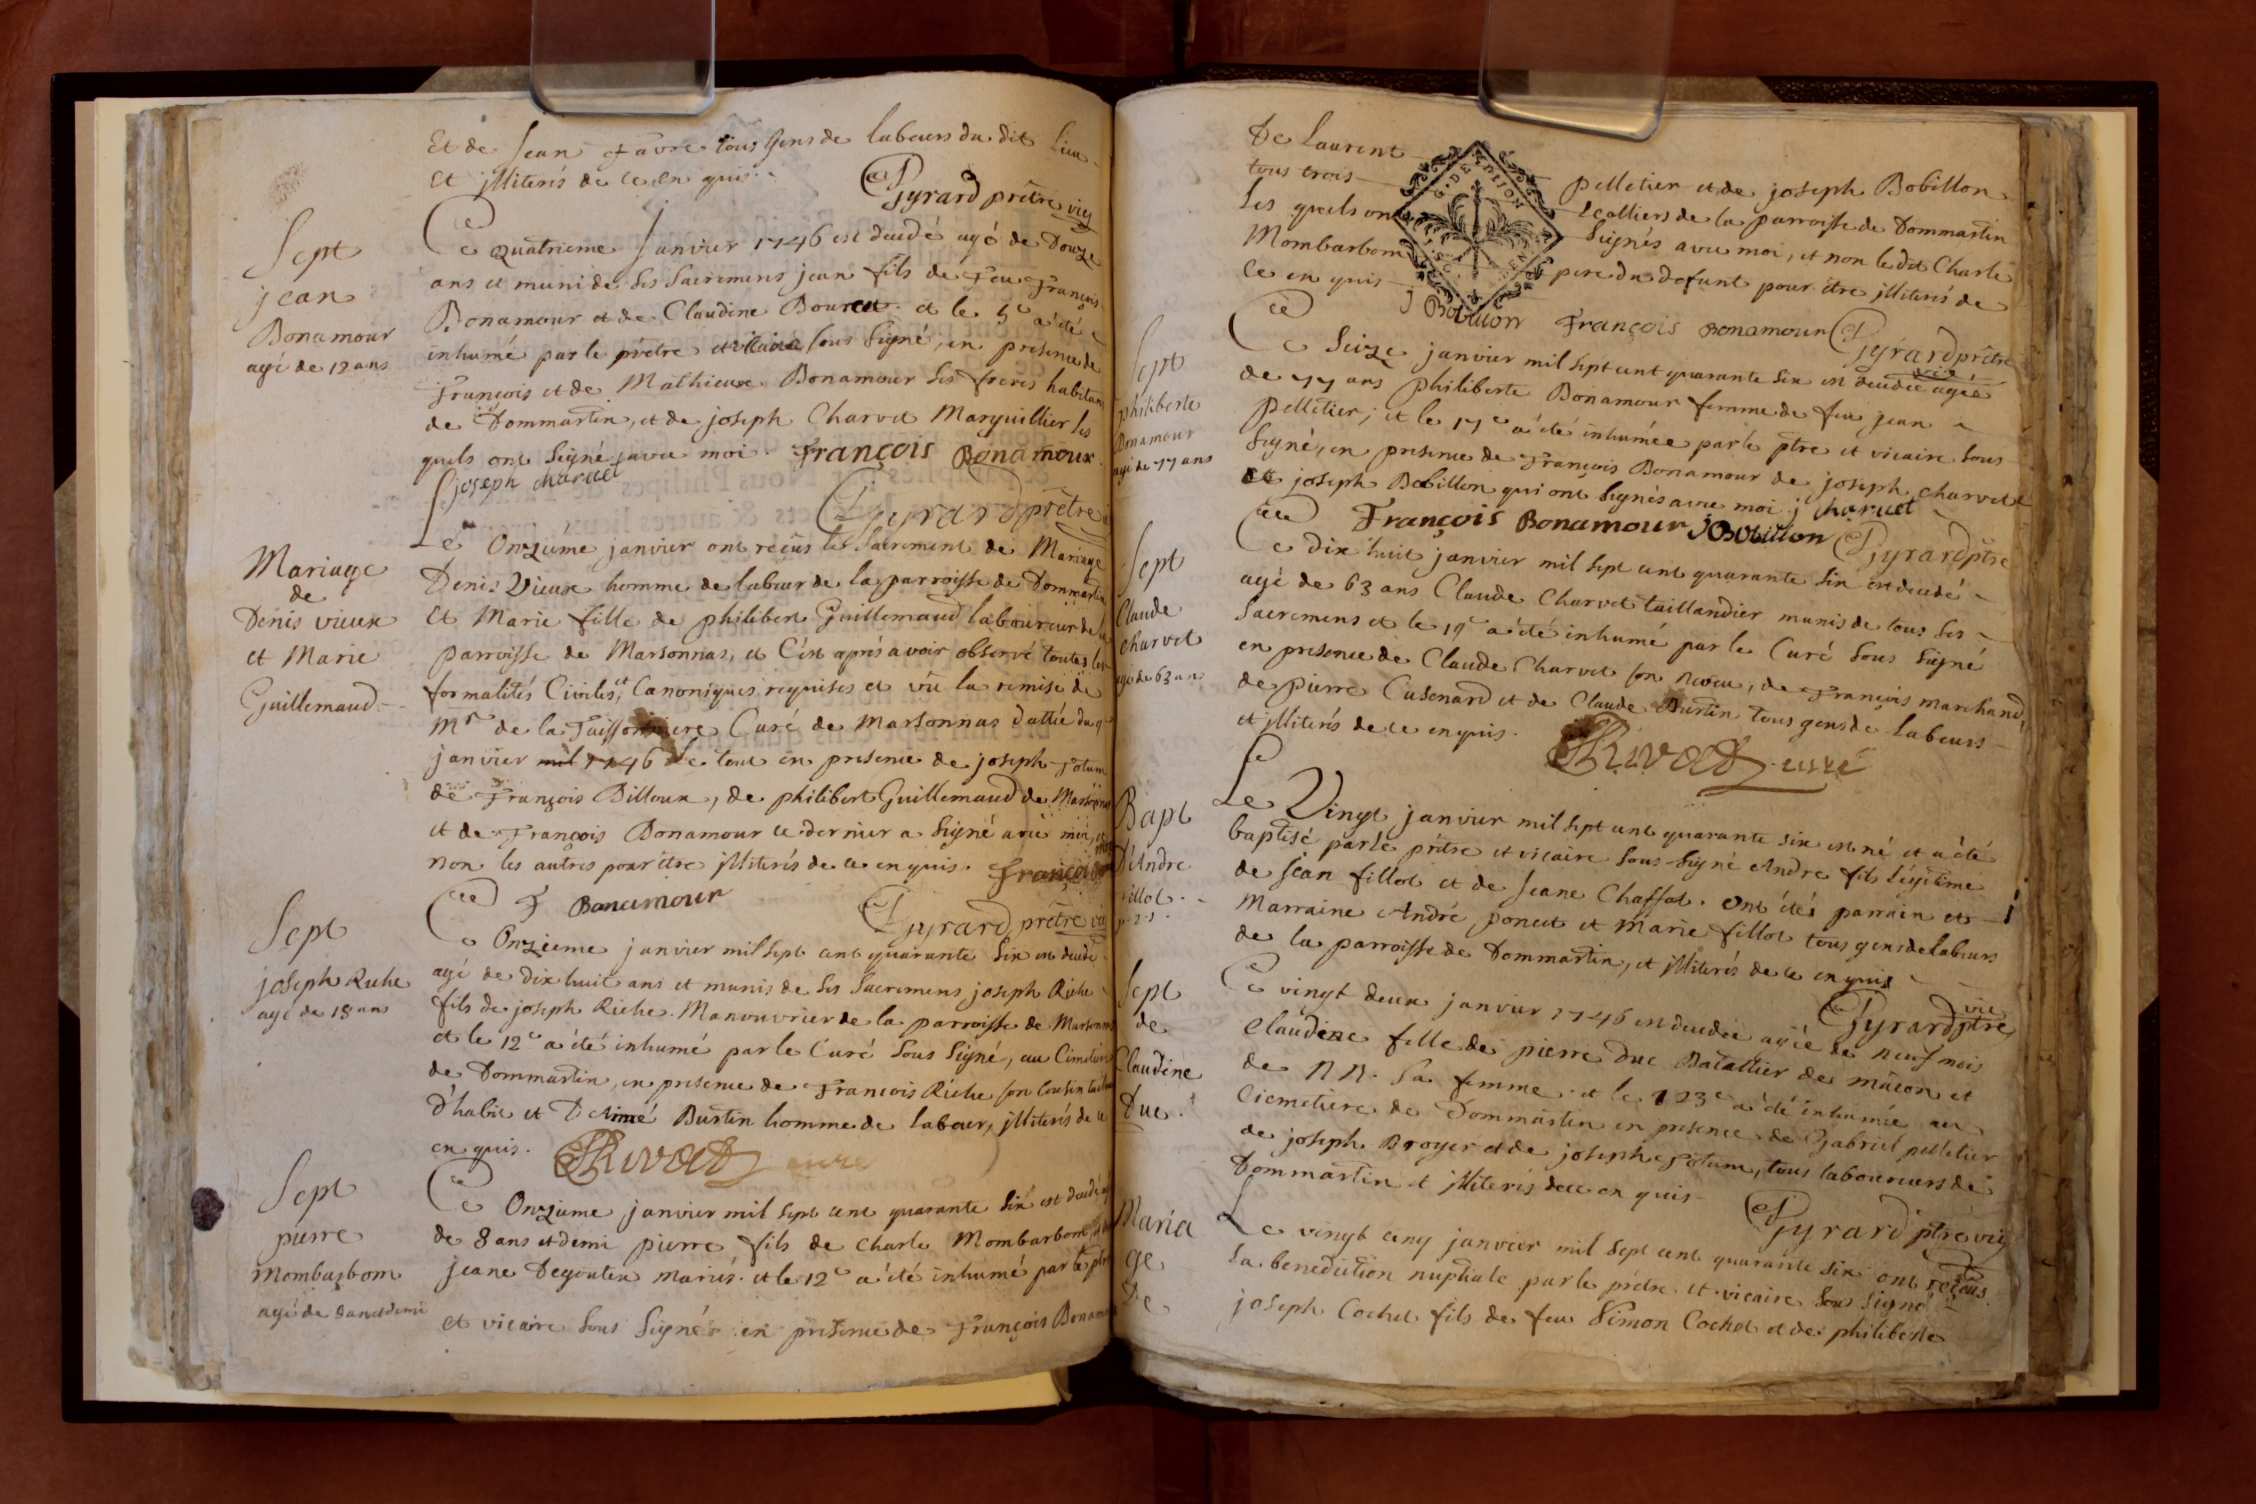 Et de Jean favre tous gens de labeurs du dit lieu
et illiterés de ce en quis.
Gyrard prêtre vic
Sept
jean
Bonamour
agé de 12 ans
Ce quatrieme Janvier 1746 est decedé agé de Douze
ans et muni de ses Sacremens jean fils de feu François
Bonamour et de Claudine Bouret. et le 5e a été
inhumé par le prêtre et vicaire sous signé, en presence de
François et de Mathieu Bonamour ses freres habitans
de Dommartin, et de joseph Charvet Marguillier les
quels ont signé avec moi. François Bonamour
joseph charuet
Gyrard prêtre
Mariage
de
Denis vieux
et Marie
Guillemaud
Le Onzième janvier ont reçus le Sacrement de Mariage
Denis Vieux homme de labeur de la parroisse de Dommartin
Et Marie fille de philibert Guillemaud laboureur de la
parroisse de Marsonnas, et C'est après avoir observé toutes les
formalités Civiles, et Canoniques requises et vû la remise de
Mr de la Curé de Marsonnas dattée du 9e
janvier mil 1746 le tout en presence de joseph fotum
de François Billoux, de philibert Guillemaud de Marsonnas
et de François Bonamour ce dernier a signé avec moi, et
non les autres pour être illiterés de ce en quis. François
Bonamour
Gyrard prêtre vic
Sept
joseph Riche
agé de 18 ans
Ce Onzieme janvier mil sept cent quarante six est decedé
agé de dix huit ans et munis de ses Sacremens joseph Riche
fils de joseph Riche Manouvrier de la parroisse de Marsonnas
et le 12e a été inhumé par le Curé sous signé, au Cimetiere
de Dommartin, en presence de François Riche son Cousin tailleur
d'habit et D'Aimé Burtin homme de labeur, illiterés de ce
en quis. Rivat curé
Sept
pierre
Mombarbom
agé de 8 ans et demi
Ce Onzieme janvier mil sept cent quarante six est decedé agé
de 8 ans et demi pierre fils de Charle Mombarbom et de
jeane Degoutin mariés. et le 12e a été inhumé par le ptre
et vicaire sous signés en presence de François Bonamour
De Laurent pelletier et de joseph Bobillon
tous trois ecolliers de la parroisse de Dommartin
Les quels ont signés avec moi, et non le dit Charle
Mombarbom pere du defunt pour être illiterés de
Ce en quis
G. DE DIJON
j Bobillon François Bonamour Gyrard prêtre
vic
Sept
philiberte
Bonamour
agé de 77 ans
Ce Seize janvier mil sept cent quarante six est decedée agée
de 77 ans philiberte Bonamour femme de feu jean
pelletier; et le 17e a été inhumée par le ptre et vicaire sous
signé, en presence de François Bonamour de joseph charvet
et joseph Bobillon qui ont signés avec moi j charuet
François Bonamour j Bobillon Gyrard ptre
Sept
Claude
charvet
agé de 63 ans
Ce dix huit janvier mil sept cent quarante six est decedé
agé de 63 ans Claude Charvet taillandier munis de tous ses
Sacremens et le 19e a été inhumé par le Curé sous signé
en presence de Claude Charvet son neveu, de François marchand,
de pierre Cusenard et de Claude Burtin tous gens de labeurs
et illiterés de ce en quis.
Rivat curé
Bapt
D'Andre
fillot
Le Vingt janvier mil sept cent quarante six est né et a été
baptisé par le prêtre et vicaire sous-signé Andre fils légitime
de jean fillot et de jeane Chaffat. Ont étés parrain et
Marraine André poncet et Marie fillot tous gens de labeurs
de la parroisse de Dommartin, et illiterés de ce en quis
vic
Gyrard ptre
Sept
de
Claudine
Duc
Ce vingt deux janvier 1746 est decedée agée de neuf mois
Claudine fille de pierre Duc Batallier de mâcon et
de N N. sa femme. et le 23e a été inhumée au
Ciemetiere de Dommartin en presence de Gabriel pelletier
de joseph Broyer et de joseph fotum, tous laboureurs de
Dommartin et illiterés de ce en quis
Gyrard ptre vic
Maria
ge
De
Le vingt cinq janvier mil sept cent quarante six ont reçus
La benediction nuptiale par le prêtre et vicaire sous signé
joseph Cochet fils de feu Simon Cochet et de philiberte